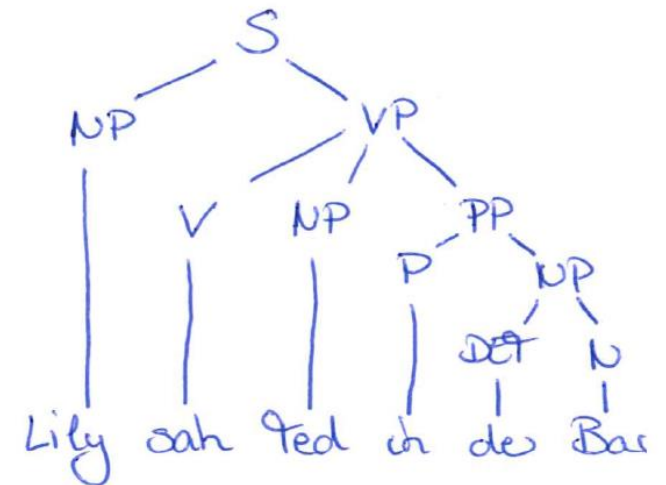 S
NP VP
V NP PP
P NP
DET N
Lily sah Ted in der Bar